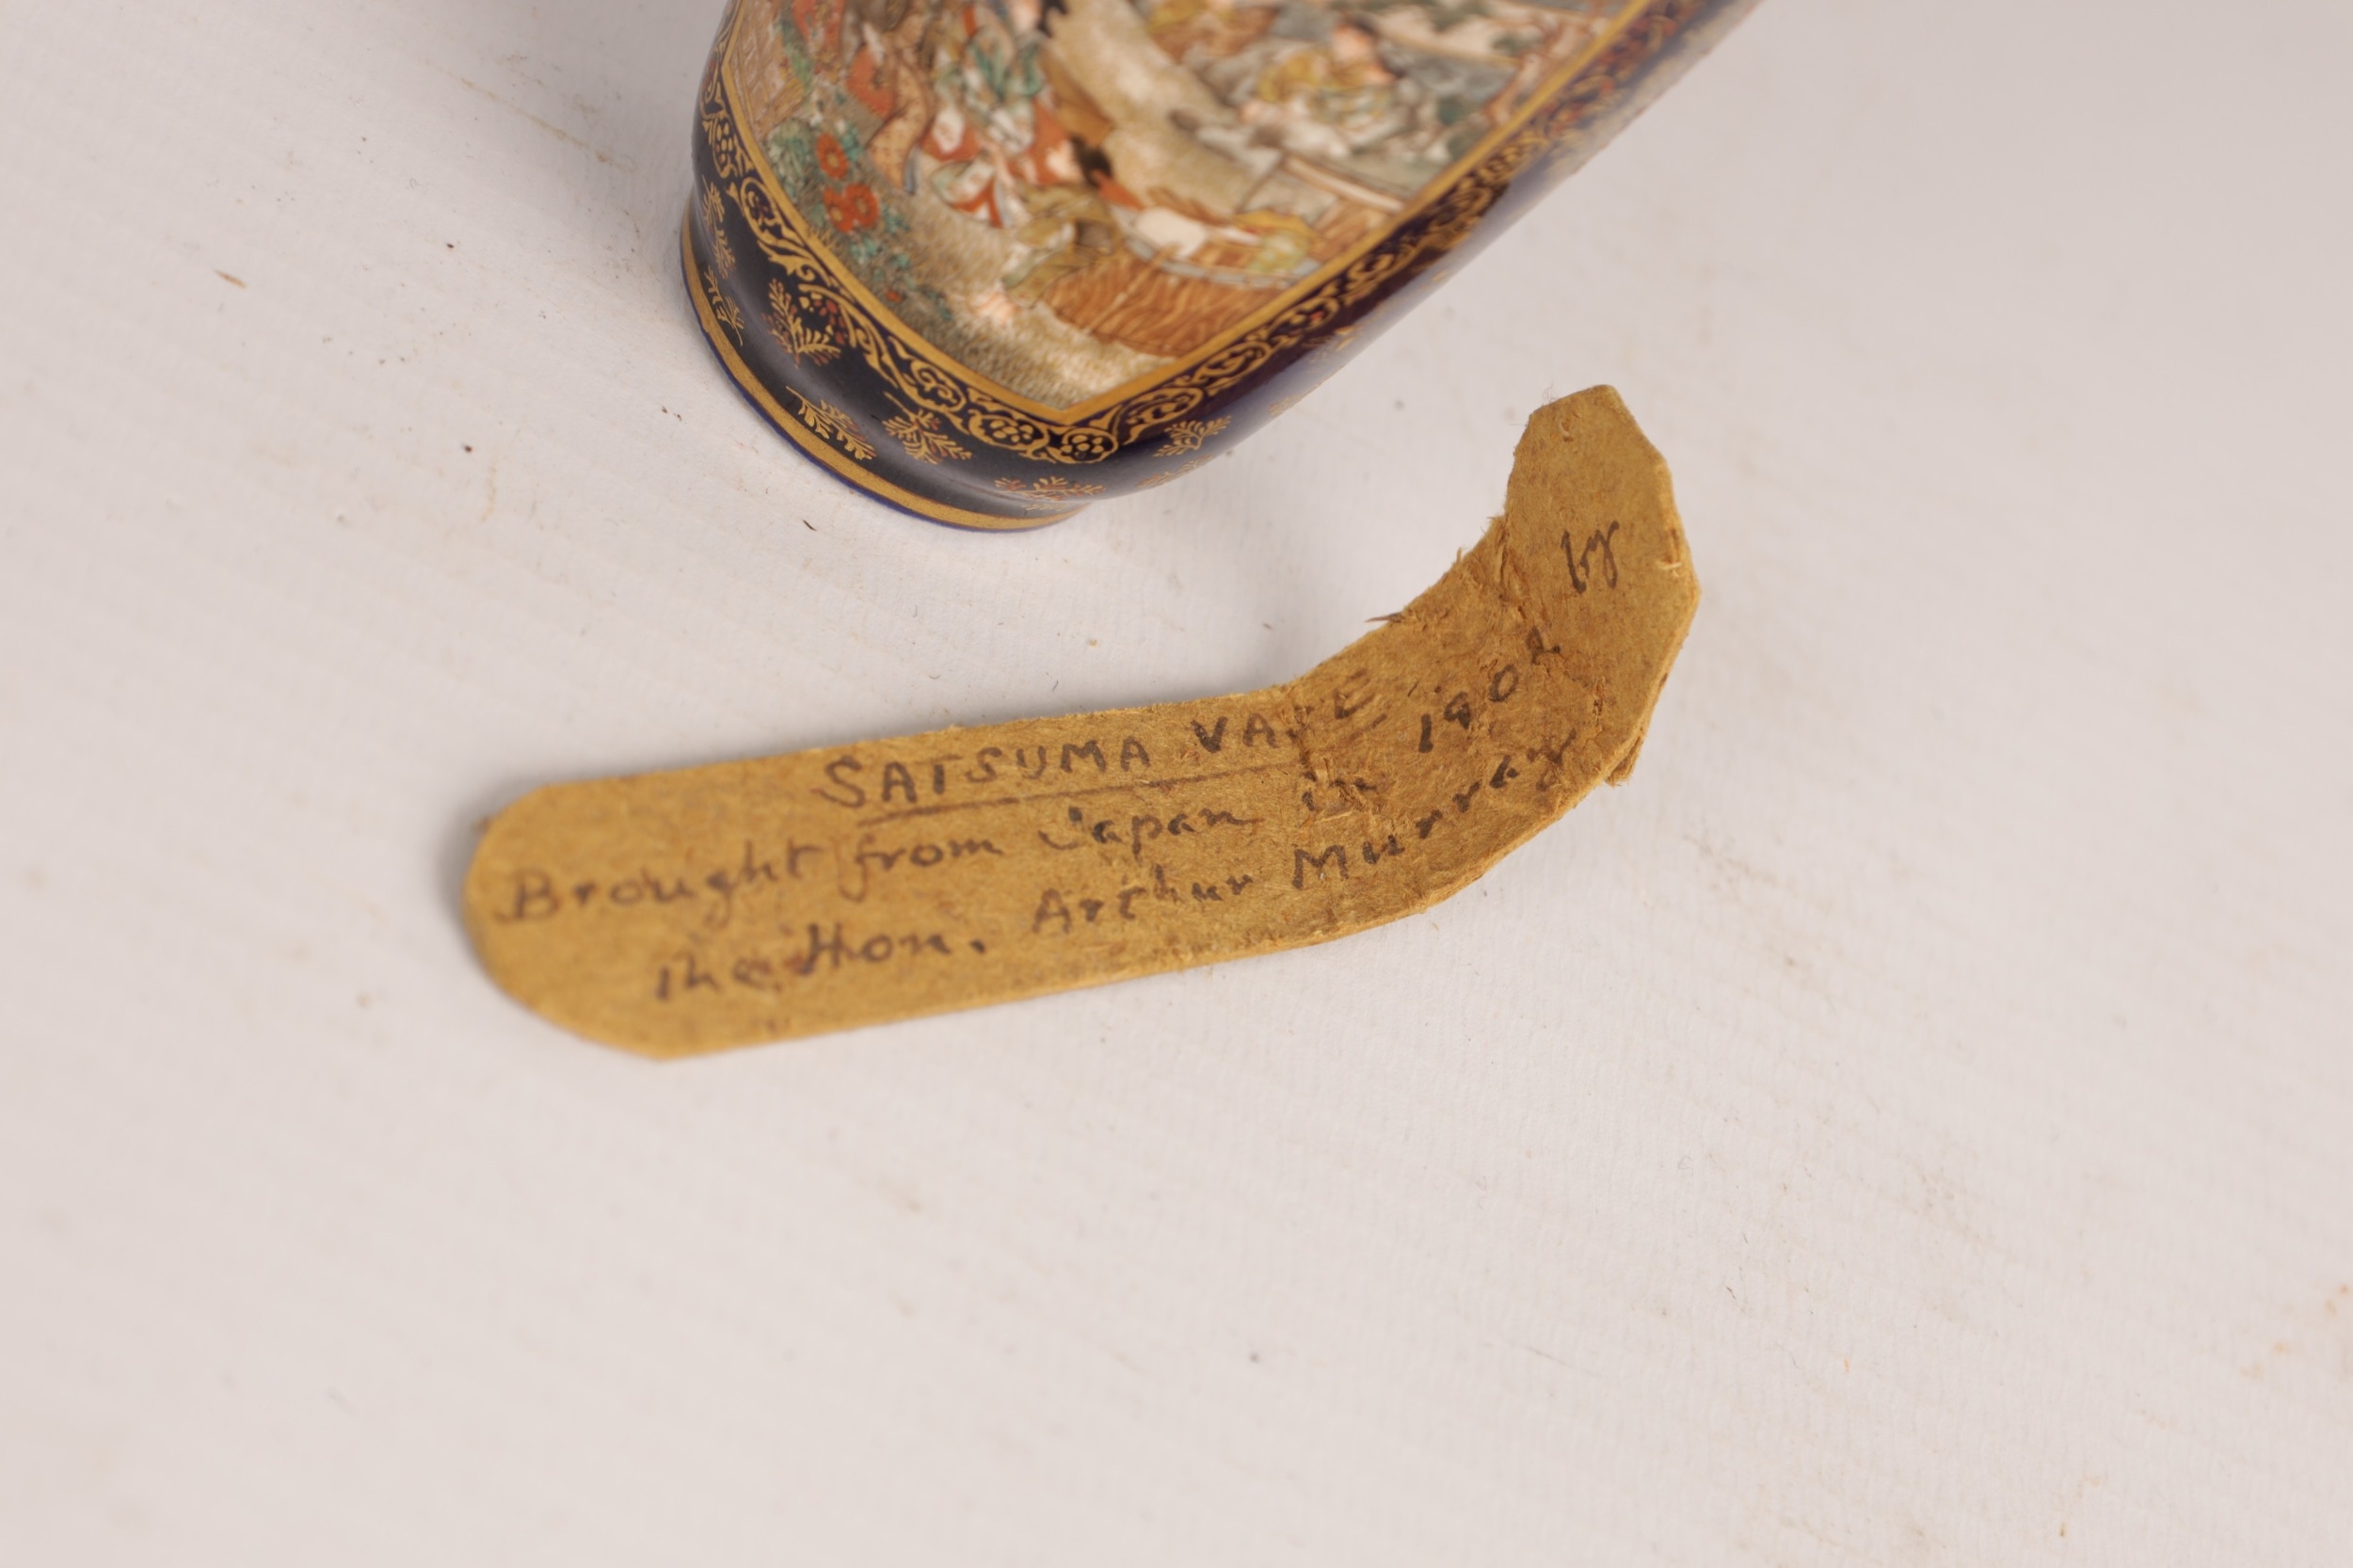 SATSUMA VASE
Brought from Japan in 1902 by
the Hon. Arthur Murray